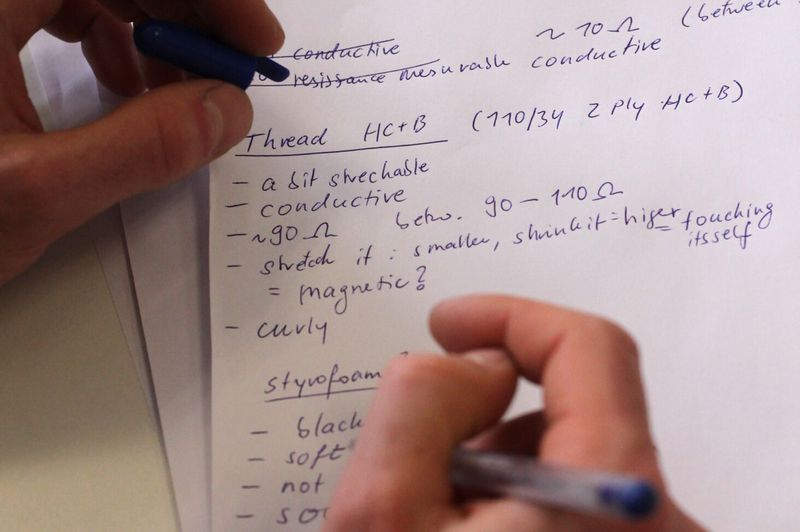 conductive ~ 10 Ω (between
resissance mesurable conductive
Thread HC+B (110/34 2 Ply HC+B)
- a bit strechable
- conductive
- ~90 Ω betw. 90 – 110 Ω
- stretch it : smaller, shrink it = higer = touching itsself
= magnetic?
- curly
styrofoam
- black
- soft
- not